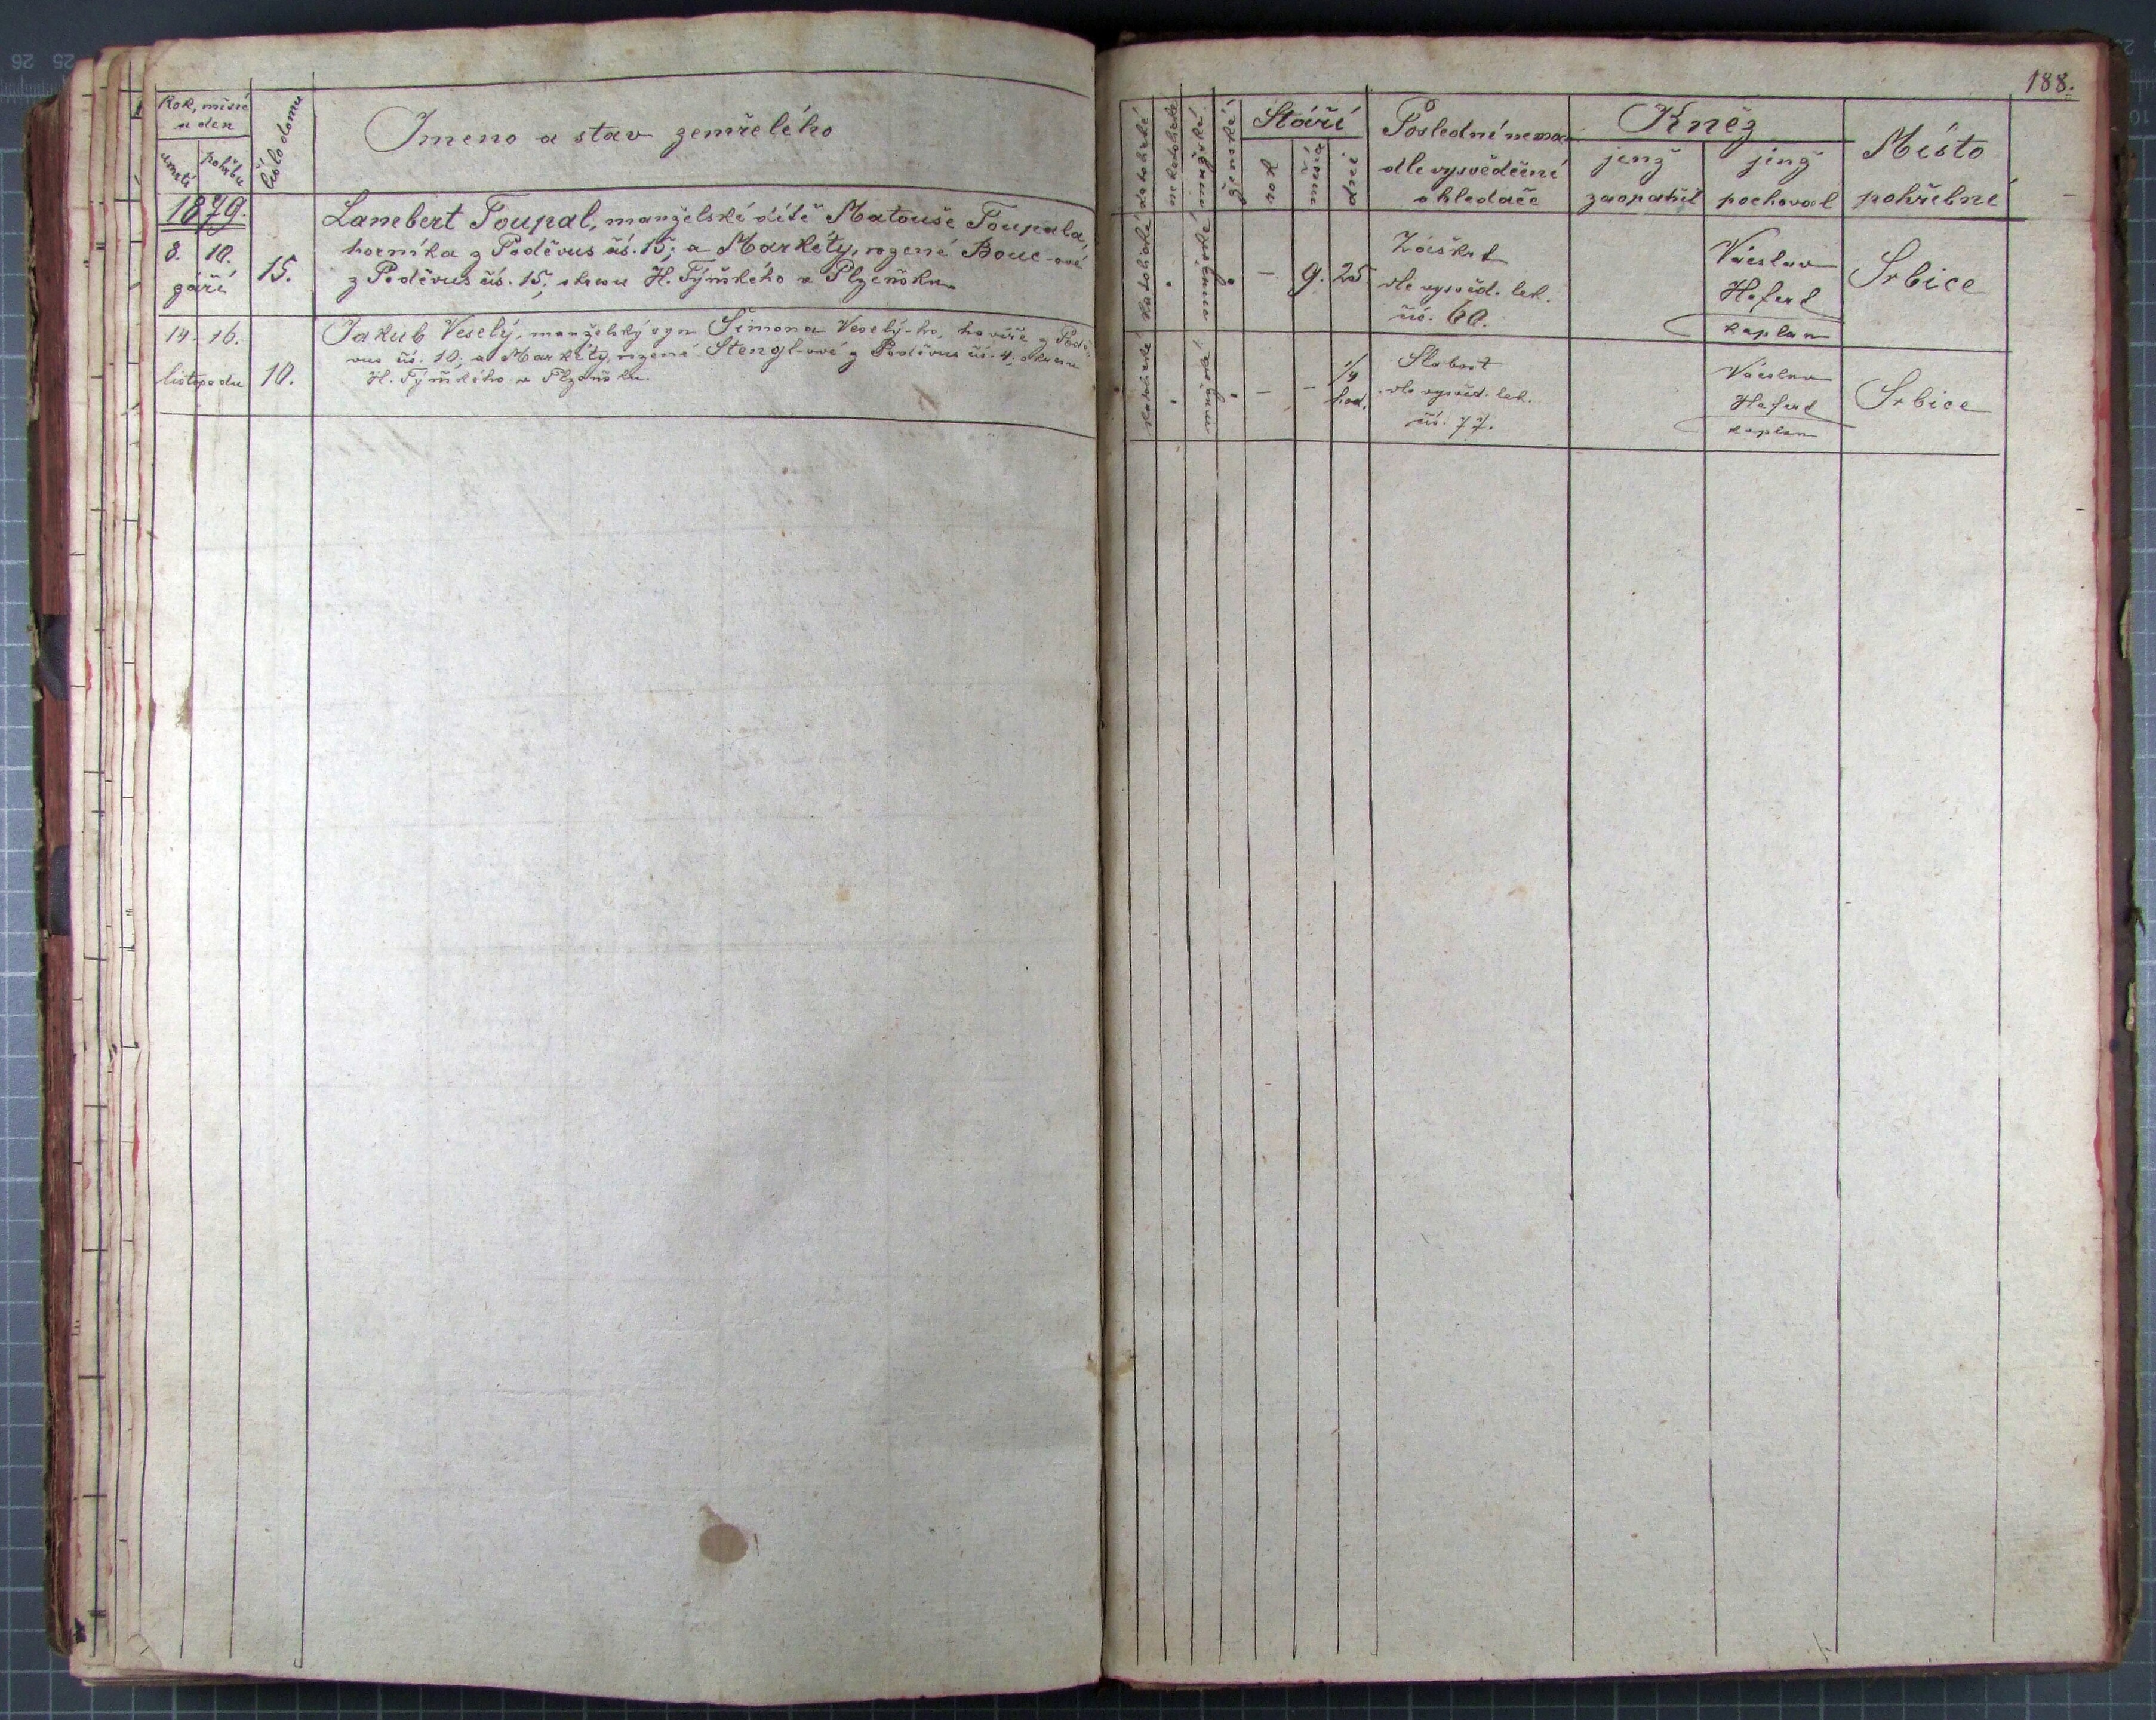 188.
Rok, měsíc
a den
úmrtí
pohřbu
číslo domu
Jmeno a stav zemřelého
katolické
nekatolické
mužské
ženské
Stáří
rok
měsíc
dní
Poslední nemoc
dle vysvědčení
ohledače
Kněz
jenž
zaopatřil
jenž
pochoval
Místo
pohřební
1879.
8. 10.
září
15.
Lambert Toupal, manželské dítě Matouše Toupala,
horníka z Poděvus čís. 15; a Markéty, rozené Bouc-ové
z Poděvus čís. 15; okresu H. Týnského v Plzeňsku.
katolické
mužské
–
9.
25
Záškrt
dle vysvěd. lek.
čís. 60.
Václav
Hefert
kaplan
Srbice
14. 16.
listopadu
10.
Jakub Veselý, manželský syn Šimona Veselý-ho, havíře z Podě-
vus čís. 10; a Markéty, rozené Stengl-ové z Poděvus čís. 4; okresu
H. Týnského v Plzeňsku.
katolické
mužské
–
–
1/4
hod.
Slabost
dle vysvěd. lek.
čís. 77.
Václav
Hefert
kaplan
Srbice